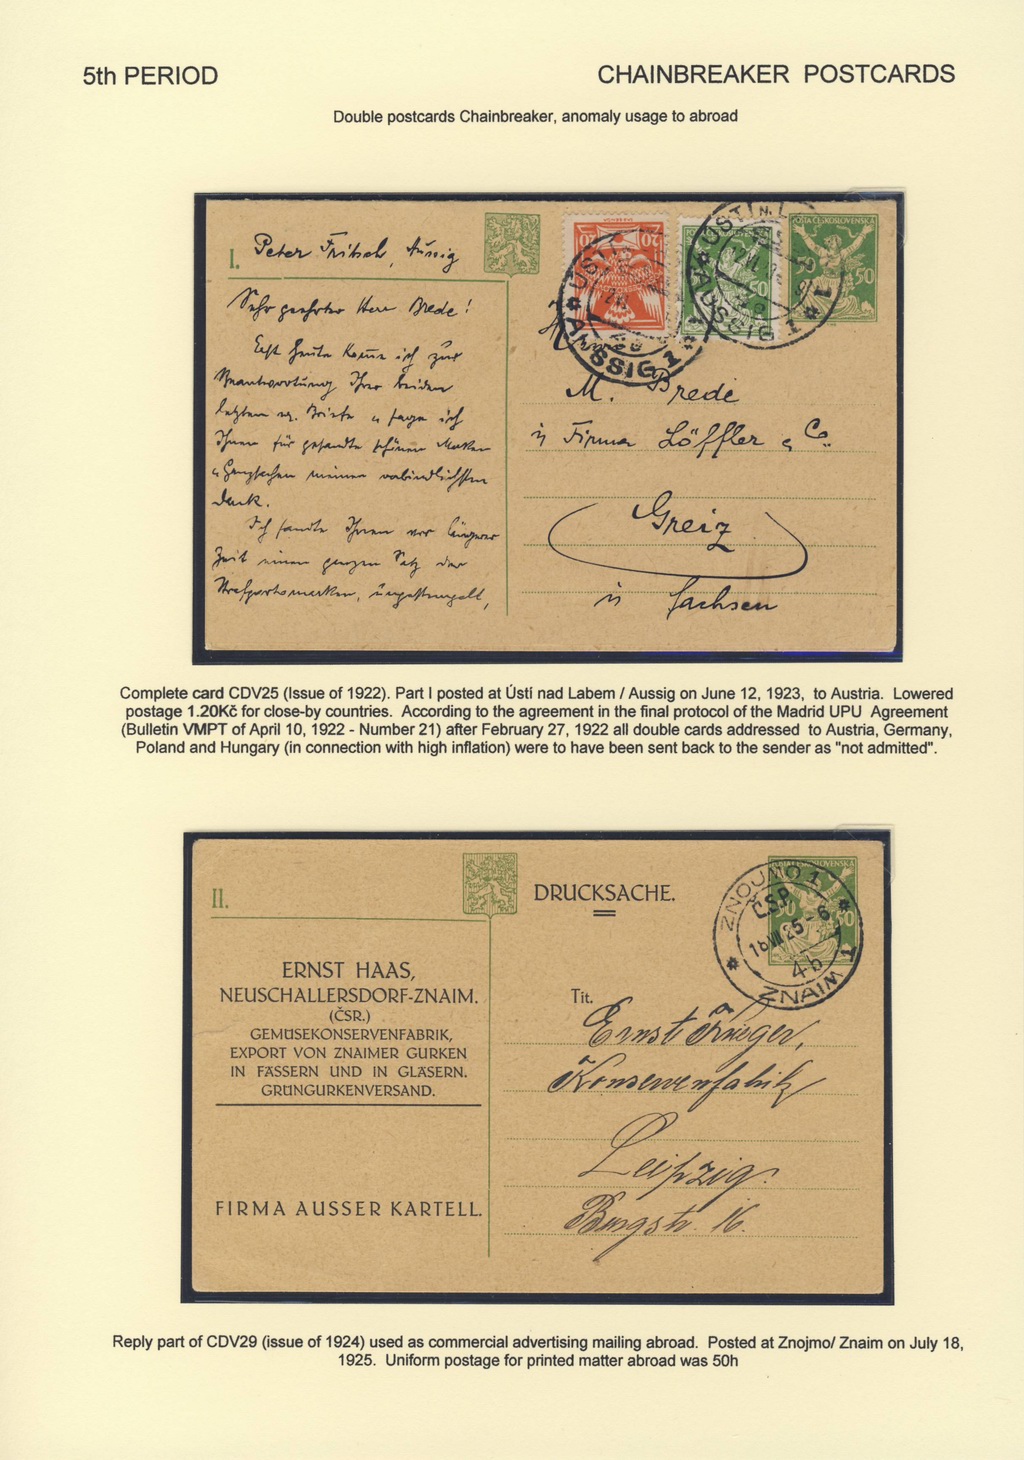 5th PERIOD
CHAINBREAKER POSTCARDS
Double postcards Chainbreaker, anomaly usage to abroad
I.
Peter Fritsch, Aussig
Sehr geehrter Herr Brede!
Erst heute komme ich zur
Beantwortung Ihrer beiden
letzten Briefe u sage ich
Ihnen für gesandte schönen Marken
u Ganzsachen meinen verbindlichsten
Dank.
Ich sandte Ihnen vor längerer
Zeit einen ganzen Satz der
Strafportomarken, ungestempelt,
20 20
50
POŠTA ČESKOSLOVENSKÁ
50
ÚSTÍ N. L.
AUSSIG 1
ÚSTÍ N. L.
AUSSIG 1
M. Brede
in Firma Löffler & Co.
Greiz
in Sachsen
Complete card CDV25 (Issue of 1922). Part I posted at Ústí nad Labem / Aussig on June 12, 1923, to Austria. Lowered
postage 1.20Kč for close-by countries. According to the agreement in the final protocol of the Madrid UPU Agreement
(Bulletin VMPT of April 10, 1922 - Number 21) after February 27, 1922 all double cards addressed to Austria, Germany,
Poland and Hungary (in connection with high inflation) were to have been sent back to the sender as "not admitted".
II.
DRUCKSACHE.
POŠTA ČESKOSLOVENSKÁ
50 50
ZNOJMO 1
Č.S.P.
18 VII 25-6
4b
ZNAIM 1
ERNST HAAS,
NEUSCHALLERSDORF-ZNAIM.
(ČSR.)
GEMÜSEKONSERVENFABRIK,
EXPORT VON ZNAIMER GURKEN
IN FÄSSERN UND IN GLÄSERN.
GRÜNGURKENVERSAND.
FIRMA AUSSER KARTELL.
Tit.
Ernst Krieger,
Konservenfabrik
Leipzig.
Burgstr. 16.
Reply part of CDV29 (issue of 1924) used as commercial advertising mailing abroad. Posted at Znojmo/ Znaim on July 18,
1925. Uniform postage for printed matter abroad was 50h